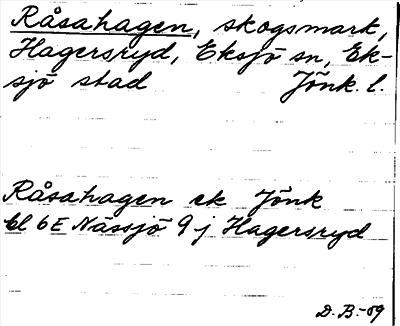 Råsahagen, skogsmark,
Hagersryd, Eksjö sn, Ek-
sjö stad Jönk. l.
Råsahagen ek Jönk
bl 6E Nässjö 9j Hagersryd
D. B.-09